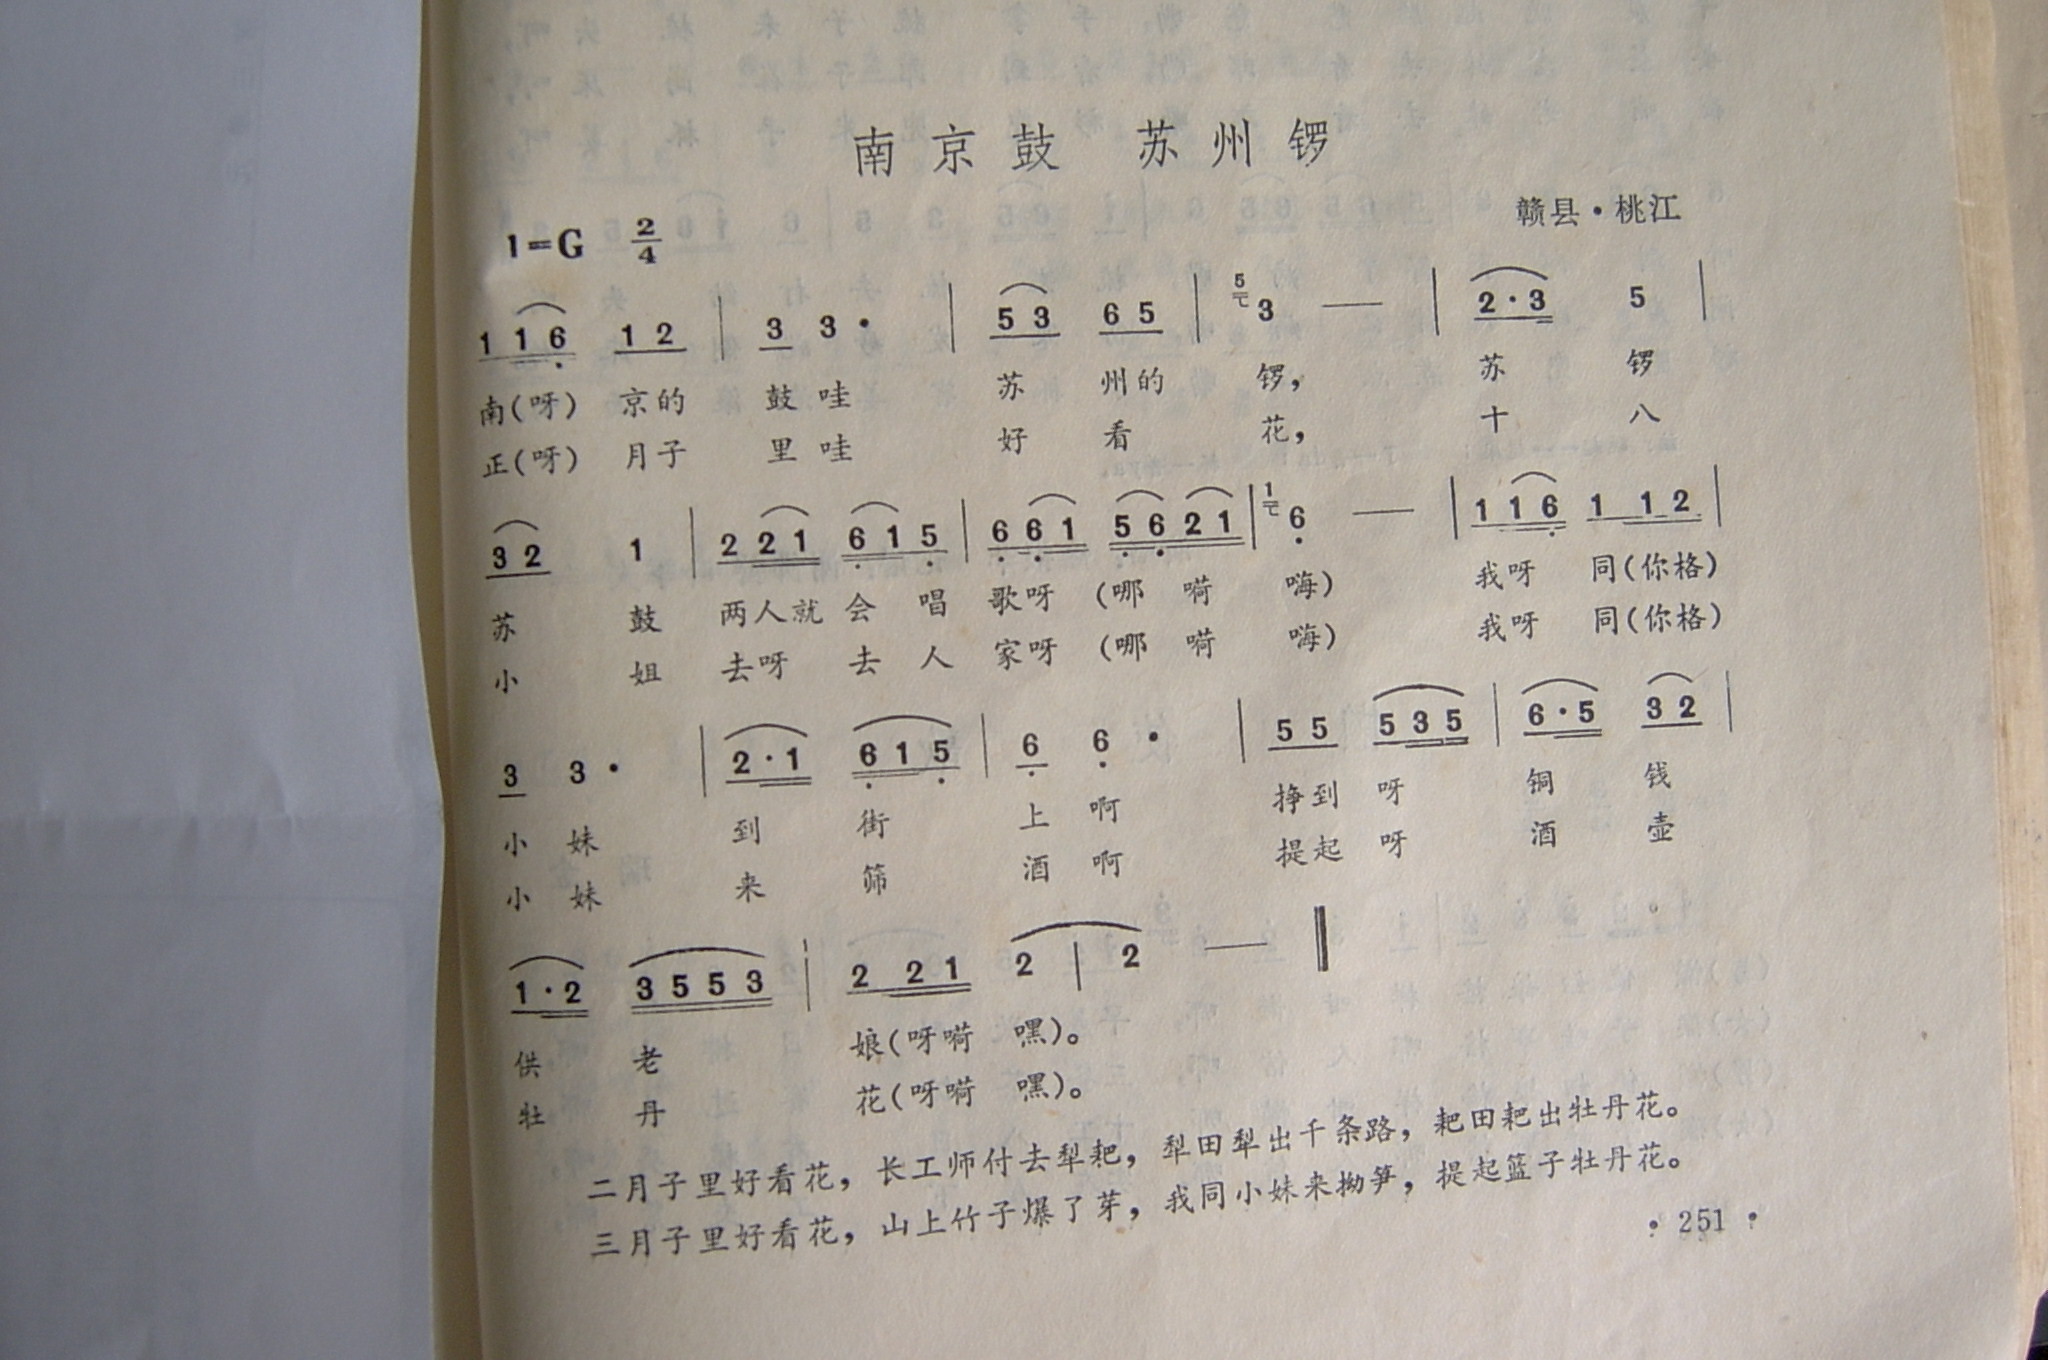 南京鼓 苏州锣
赣县·桃江
1=G 2/4
1 1 6 1 2 | 3 3 · | 5 3 6 5 | 5 3 — | 2 · 3 5 |
南(呀) 京的 鼓 哇 苏 州的 锣, 苏 锣
正(呀) 月子 里 哇 好 看 花, 十 八
3 2 1 | 2 2 1 6 1 5 | 6 6 1 5 6 2 1 | 1 6 — | 1 1 6 1 1 2 |
苏 鼓 两人就 会 唱 歌呀 (哪 嗬 嗨) 我呀 同(你格)
小 姐 去呀 去 人 家呀 (哪 嗬 嗨) 我呀 同(你格)
3 3 · | 2 · 1 6 1 5 | 6 6 · | 5 5 5 3 5 | 6 · 5 3 2 |
小 妹 到 街 上 啊 挣到 呀 铜 钱
小 妹 来 筛 酒 啊 提起 呀 酒 壶
1 · 2 3 5 5 3 | 2 2 1 2 | 2 — ‖
供 老 娘(呀嗬 嘿)。
牡 丹 花(呀嗬 嘿)。
二月子里好看花，长工师付去犁耙，犁田犁出千条路，耙田耙出牡丹花。
三月子里好看花，山上竹子爆了芽，我同小妹来拗笋，提起篮子牡丹花。
· 251 ·